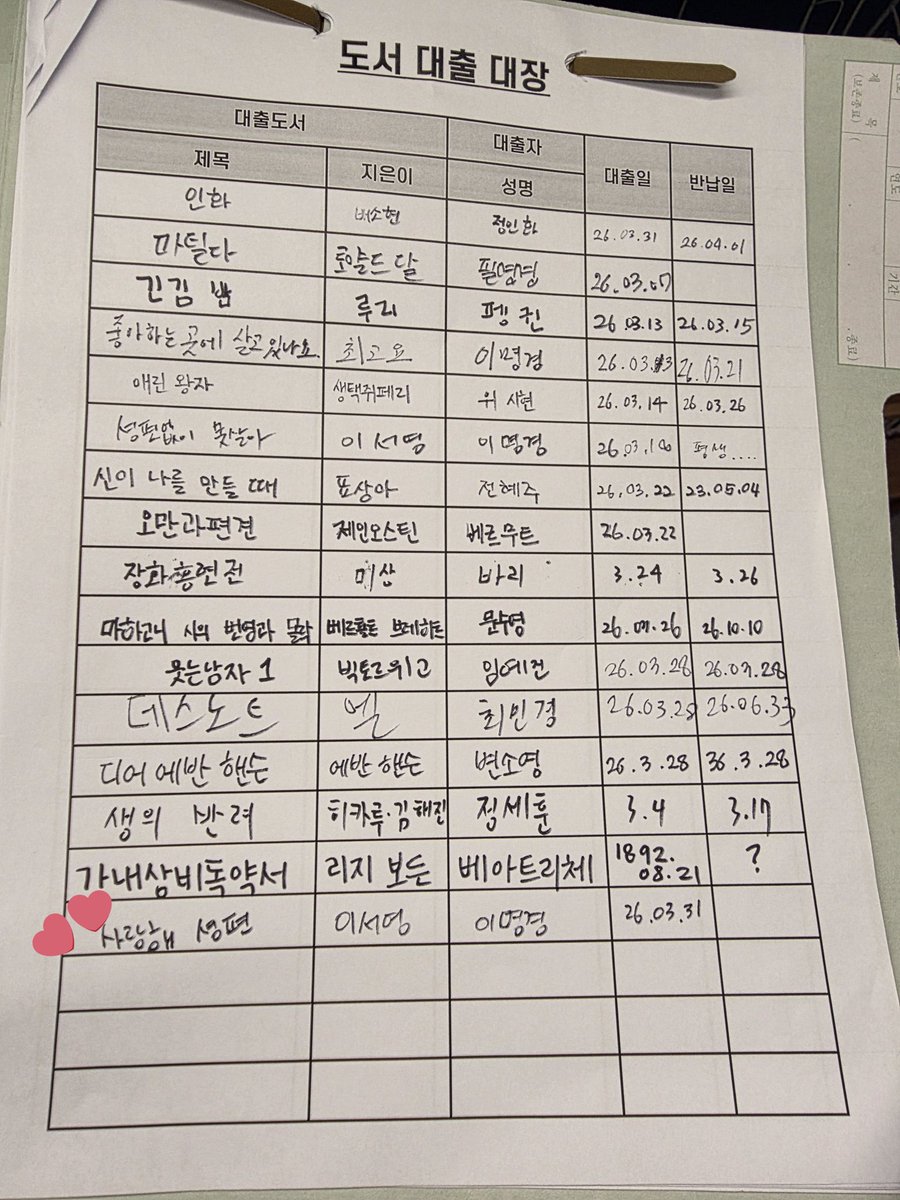 도서 대출 대장
대출도서 대출자 대출일 반납일
제목 지은이 성명
인화 배소현 정인화 26.03.31 26.04.01
마틸다 로알드 달 필영경 26.03.07
긴긴 밤 루리 펭귄 26.03.13 26.03.15
좋아하는 곳에 살고있나요 최고요 이명경 26.03.13 26.03.21
애린 왕자 생택쥐페리 위시현 26.03.14 26.03.26
성편없이 못살아 이서영 이명경 26.03.18 평생....
신이 나를 만들 때 표상아 전혜주 26.03.22 23.05.04
오만과편견 제인오스틴 베르무트 26.03.22
장화홍련전 미상 바리 3.24 3.26
마하고니 시의 번영과 몰락 베르톨트 브레히트 문수영 26.09.26 26.10.10
웃는남자 1 빅토르위고 임예진 26.03.28 26.03.28
데스노트 엘 최인경 26.03.28 26.06.33
디어 에반 핸슨 에반 핸슨 변소영 26.3.28 36.3.28
생의 반려 히카루·김해진 정세훈 3.4 3.17
가내상비독약서 리지 보든 베아트리체 1892.08.21 ?
사랑해 성편 이서영 이명경 26.03.31
제 목
(보존종료)
연도
기간
종료)